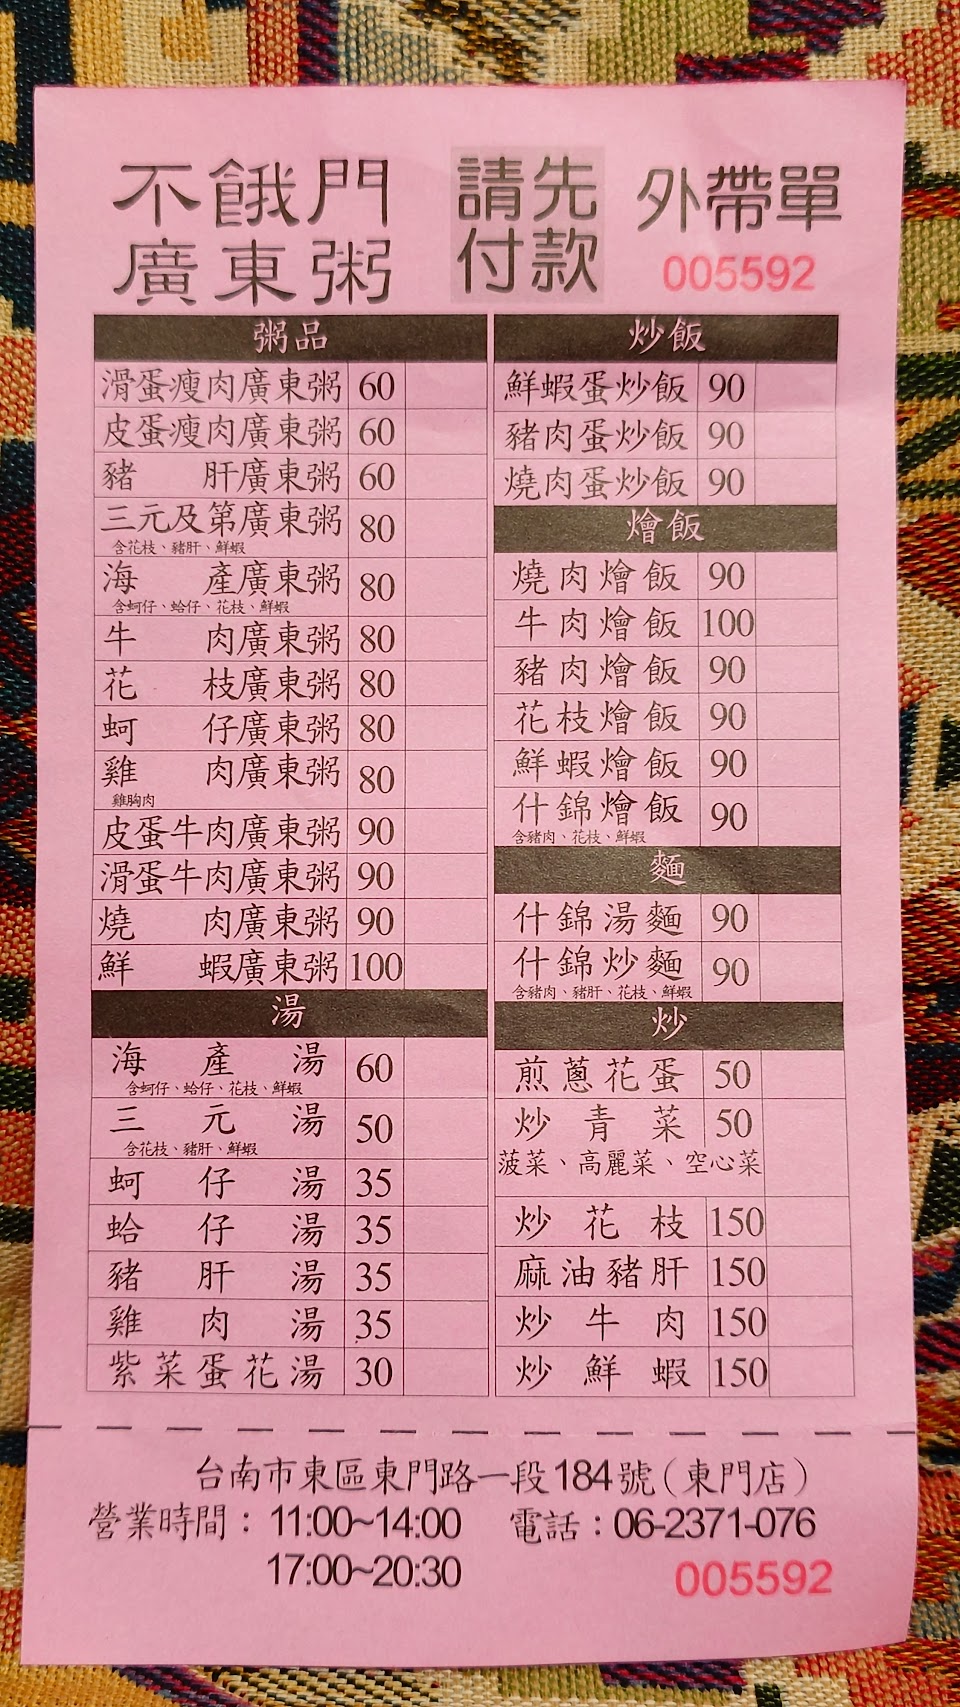 不餓門
廣東粥
請先
付款
外帶單
005592
粥品
滑蛋瘦肉廣東粥 60
皮蛋瘦肉廣東粥 60
豬肝廣東粥 60
三元及第廣東粥 80
含花枝、豬肝、鮮蝦
海產廣東粥 80
含蚵仔、蛤仔、花枝、鮮蝦
牛肉廣東粥 80
花枝廣東粥 80
蚵仔廣東粥 80
雞肉廣東粥 80
雞胸肉
皮蛋牛肉廣東粥 90
滑蛋牛肉廣東粥 90
燒肉廣東粥 90
鮮蝦廣東粥 100
湯
海產湯 60
含蚵仔、蛤仔、花枝、鮮蝦
三元湯 50
含花枝、豬肝、鮮蝦
蚵仔湯 35
蛤仔湯 35
豬肝湯 35
雞肉湯 35
紫菜蛋花湯 30
炒飯
鮮蝦蛋炒飯 90
豬肉蛋炒飯 90
燒肉蛋炒飯 90
燴飯
燒肉燴飯 90
牛肉燴飯 100
豬肉燴飯 90
花枝燴飯 90
鮮蝦燴飯 90
什錦燴飯 90
含豬肉、花枝、鮮蝦
麵
什錦湯麵 90
什錦炒麵 90
含豬肉、豬肝、花枝、鮮蝦
炒
煎蔥花蛋 50
炒青菜 50
菠菜、高麗菜、空心菜
炒花枝 150
麻油豬肝 150
炒牛肉 150
炒鮮蝦 150
台南市東區東門路一段184號(東門店)
營業時間：11:00~14:00 電話：06-2371-076
17:00~20:30
005592